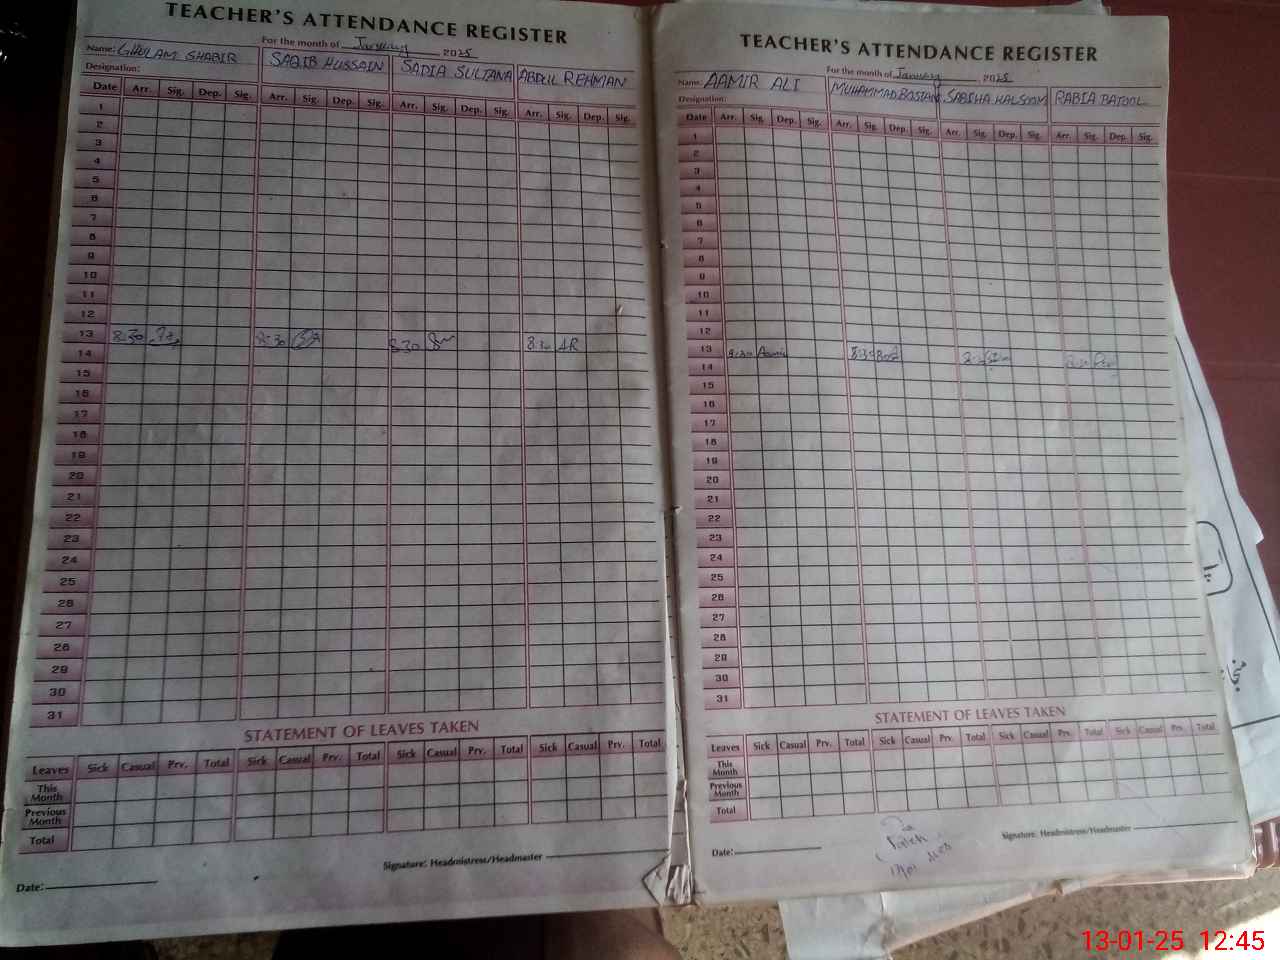 TEACHER'S ATTENDANCE REGISTER
For the month of January 2025
Name: GHULAM SHABIR SAQIB HUSSAIN SADIA SULTANA ABDUL REHMAN
Designation:
Date Arr. Sig. Dep. Sig. Arr. Sig. Dep. Sig. Arr. Sig. Dep. Sig. Arr. Sig. Dep. Sig.
1
2
3
4
5
6
7
8
9
10
11
12
13 8:30 8:30 8:30 8:30 AR
14
15
16
17
18
19
20
21
22
23
24
25
26
27
28
29
30
31
STATEMENT OF LEAVES TAKEN
Leaves Sick Casual Prv. Total Sick Casual Prv. Total Sick Casual Prv. Total Sick Casual Prv. Total
This Month
Previous Month
Total
Signature: Headmistress/Headmaster
Date:
TEACHER'S ATTENDANCE REGISTER
For the month of January 2025
Name: AAMIR ALI MUHAMMAD BOSTAN SABIHA KALSOOM RABIA BATOOL
Designation:
Date Arr. Sig. Dep. Sig. Arr. Sig. Dep. Sig. Arr. Sig. Dep. Sig. Arr. Sig. Dep. Sig.
1
2
3
4
5
6
7
8
9
10
11
12
13 8:30 Aamir 8:30
14
15
16
17
18
19
20
21
22
23
24
25
26
27
28
29
30
31
STATEMENT OF LEAVES TAKEN
Leaves Sick Casual Prv. Total Sick Casual Prv. Total Sick Casual Prv. Total Sick Casual Prv. Total
This Month
Previous Month
Total
Signature: Headmistress/Headmaster
Date:
13-01-25 12:45